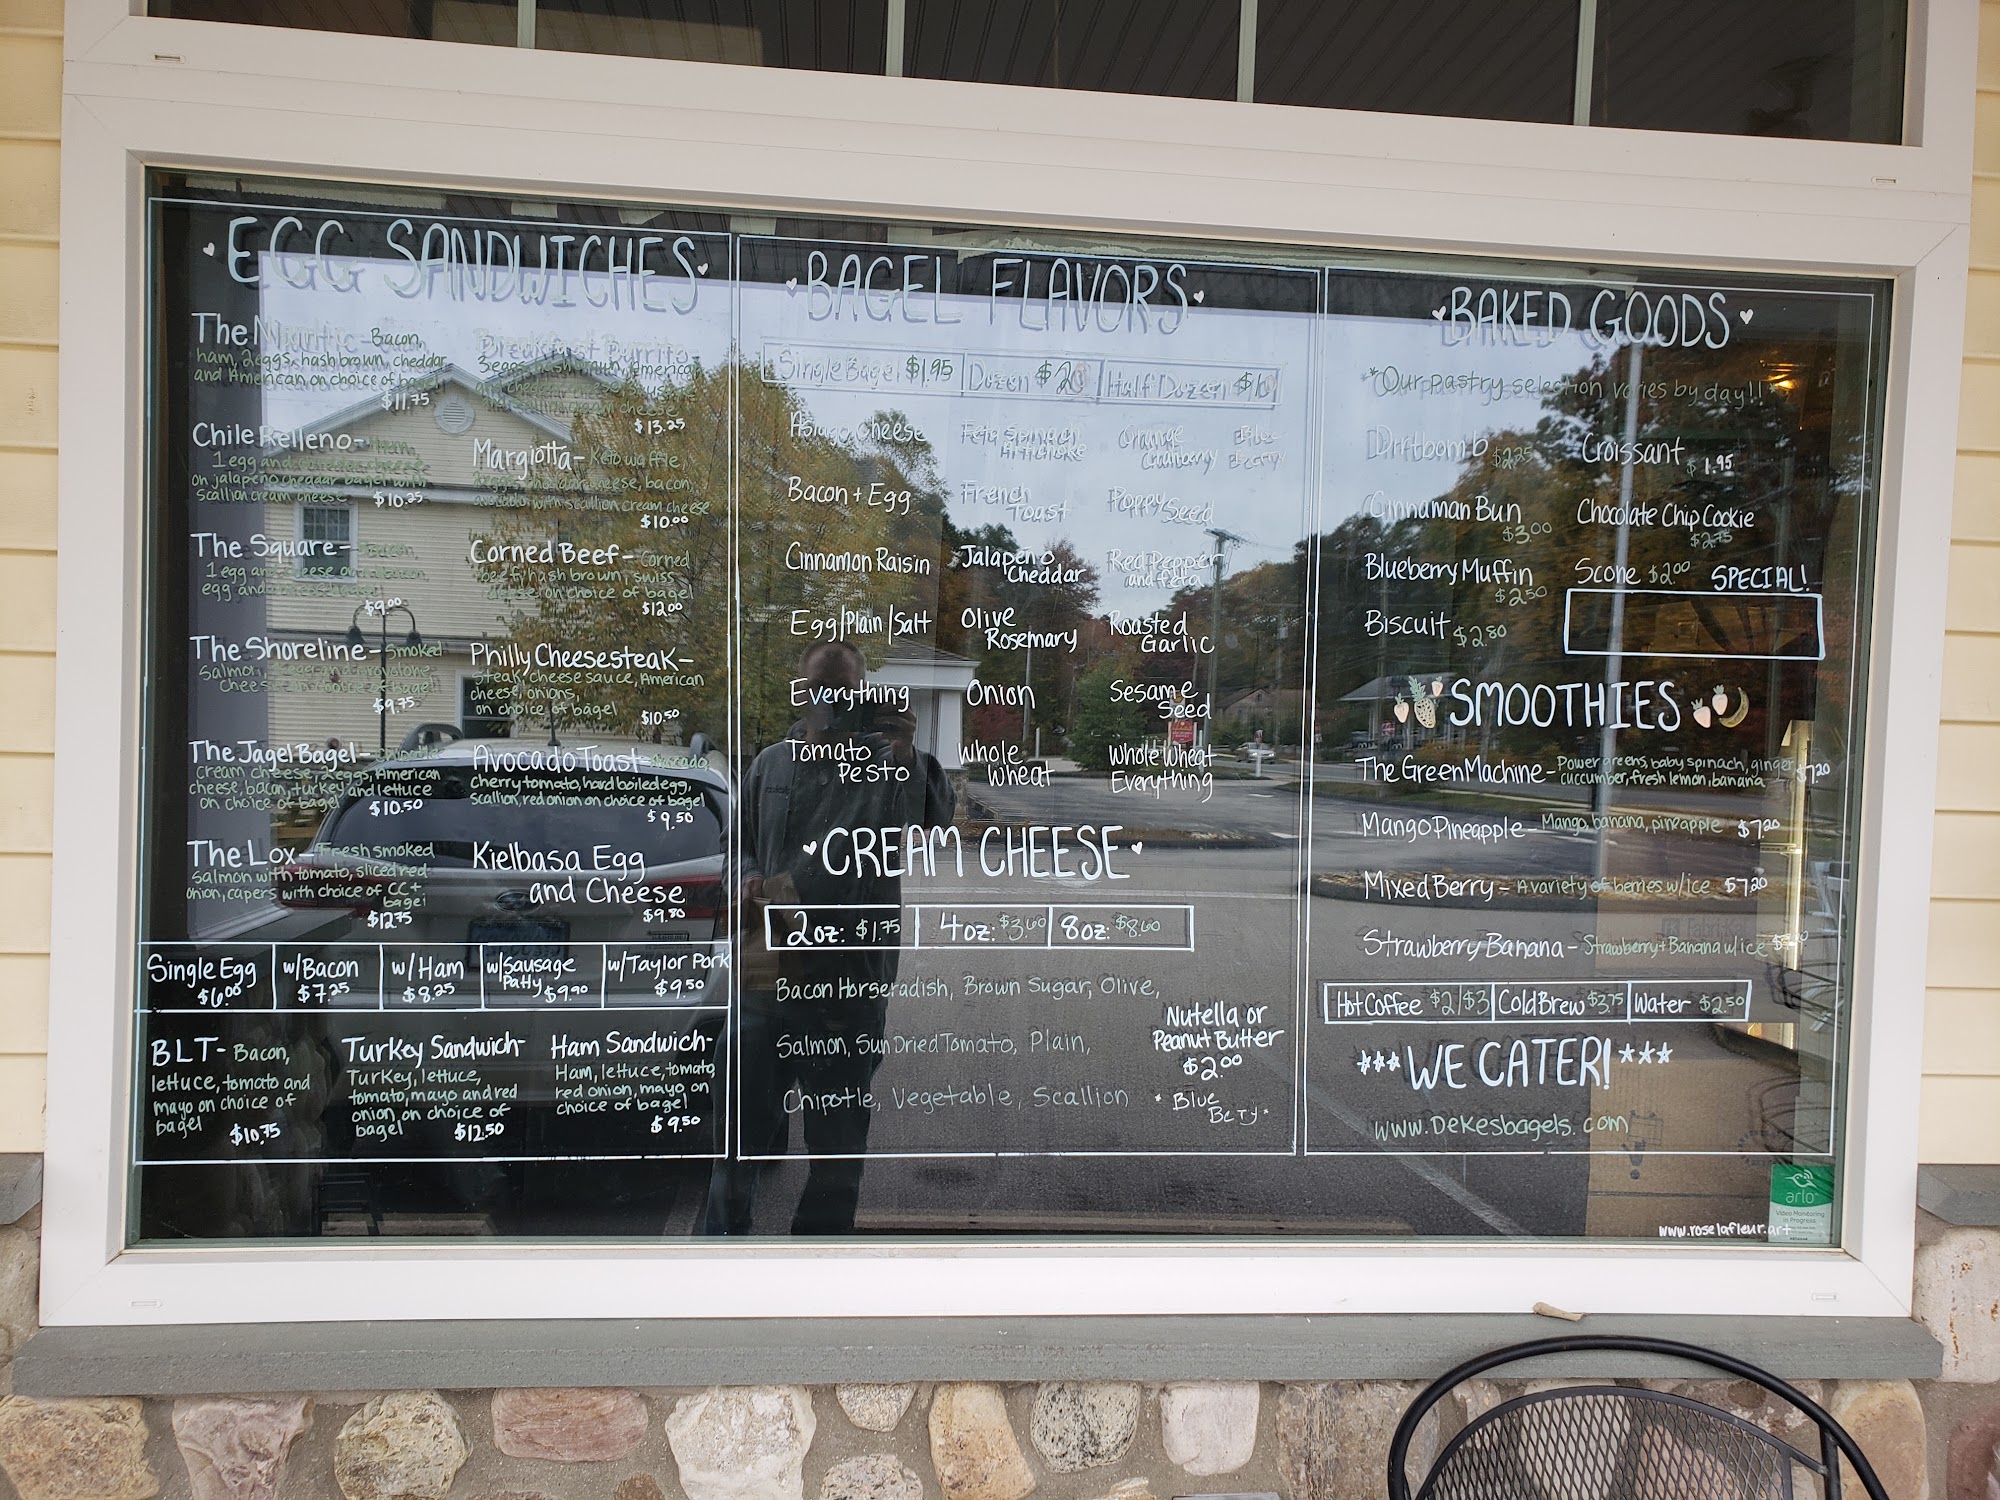 EGG SANDWICHES
The Niantic - Bacon,
ham, 2 eggs, hash brown, cheddar
and American, on choice of bagel
$11.75
Chile Relleno - Ham,
1 egg and cheddar cheese
on jalapeño cheddar bagel with
scallion cream cheese $10.25
The Square - Bacon,
1 egg and cheese on
egg and cheese bagel
$9.00
The Shoreline - Smoked
Salmon, egg and provolone
cheese on choice of bagel
$9.75
The Jagel Bagel - Chipotle
cream cheese, 2 eggs, American
cheese, bacon, turkey and lettuce
on choice of bagel $10.50
The Lox - Fresh smoked
salmon with tomato, sliced red
onion, capers with choice of CC +
bagel
$12.75
Breakfast Burrito
3 eggs, hash brown, American
and cheddar cheese
cream cheese
$13.25
Margiotta - Keto waffle,
2 eggs, cheddar cheese, bacon,
avocado with scallion cream cheese
$10.00
Corned Beef - Corned
beef, hash brown, swiss
cheese on choice of bagel
$12.00
Philly Cheesesteak -
Steak, cheese sauce, American
cheese, onions,
on choice of bagel $10.50
Avocado Toast - Avocado,
Cherry tomato, hard boiled egg,
scallion, red onion on choice of bagel
$9.50
Kielbasa Egg
and Cheese
$9.80
Single Egg $6.00
w/Bacon $7.25
w/Ham $8.25
w/Sausage Patty $9.90
w/Taylor Pork $9.50
BLT - Bacon,
lettuce, tomato and
mayo on choice of
bagel $10.75
Turkey Sandwich -
Turkey, lettuce,
tomato, mayo and red
onion, on choice of
bagel $12.50
Ham Sandwich -
Ham, lettuce, tomato,
red onion, mayo on
choice of bagel
$9.50
BAGEL FLAVORS
Single Bagel $1.95 Dozen $20 Half Dozen $10
Asiago Cheese
Feta Spinach
Artichoke
Orange
Cranberry
Blue
Berry
Bacon + Egg
French
Toast
Poppy Seed
Cinnamon Raisin
Jalapeño
Cheddar
Red Pepper
and Feta
Egg/Plain/Salt
Olive
Rosemary
Roasted
Garlic
Everything
Onion
Sesame
Seed
Tomato
Pesto
Whole
Wheat
Whole Wheat
Everything
CREAM CHEESE
2oz: $1.75 4oz: $3.60 8oz: $8.60
Bacon Horseradish, Brown Sugar, Olive,
Salmon, Sun Dried Tomato, Plain,
Chipotle, Vegetable, Scallion
Nutella or
Peanut Butter
$2.00
*Blue
Berry*
BAKED GOODS
**Our pastry selection varies by day!!*
Dirtbomb $2.25
Croissant $1.95
Cinnaman Bun
$3.00
Chocolate Chip Cookie
$2.75
Blueberry Muffin
$2.50
Scone $2.00 SPECIAL!
Biscuit $2.80
SMOOTHIES
The Green Machine - Power greens, baby spinach, ginger,
cuccumber, fresh lemon, banana $7.20
Mango Pineapple - Mango, banana, pineapple $7.20
Mixed Berry - A variety of berries w/ice $7.20
Strawberry Banana - Strawberry + Banana w/ice
Hot Coffee $2/$3 Cold Brew $3.75 Water $2.50
***WE CATER!***
www.Dekesbagels.com
arlo
Video Monitoring
in Progress
www.roselafleur.art